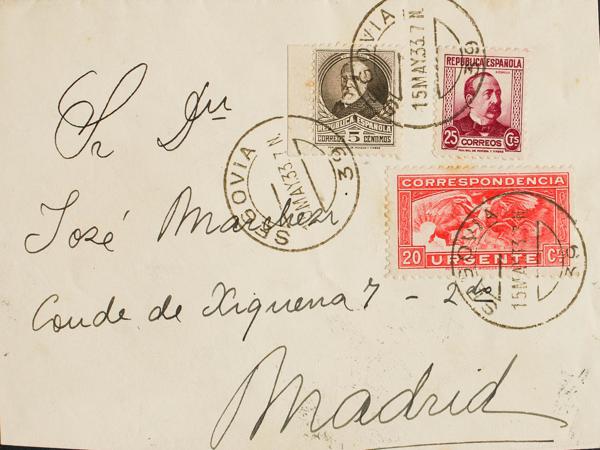 REPUBLICA ESPAÑOLA
CORREOS 5 CENTIMOS
REPUBLICA ESPAÑOLA
25 CORREOS Cts
CORRESPONDENCIA
20 URGENTE
SEGOVIA
15 MAY.33.7 N.
39
SEGOVIA
MAY.33.7 N.
39
15 MAY.33
39
Sr Dn
José
Conde de Xiquena 7 - 2º
Madrid